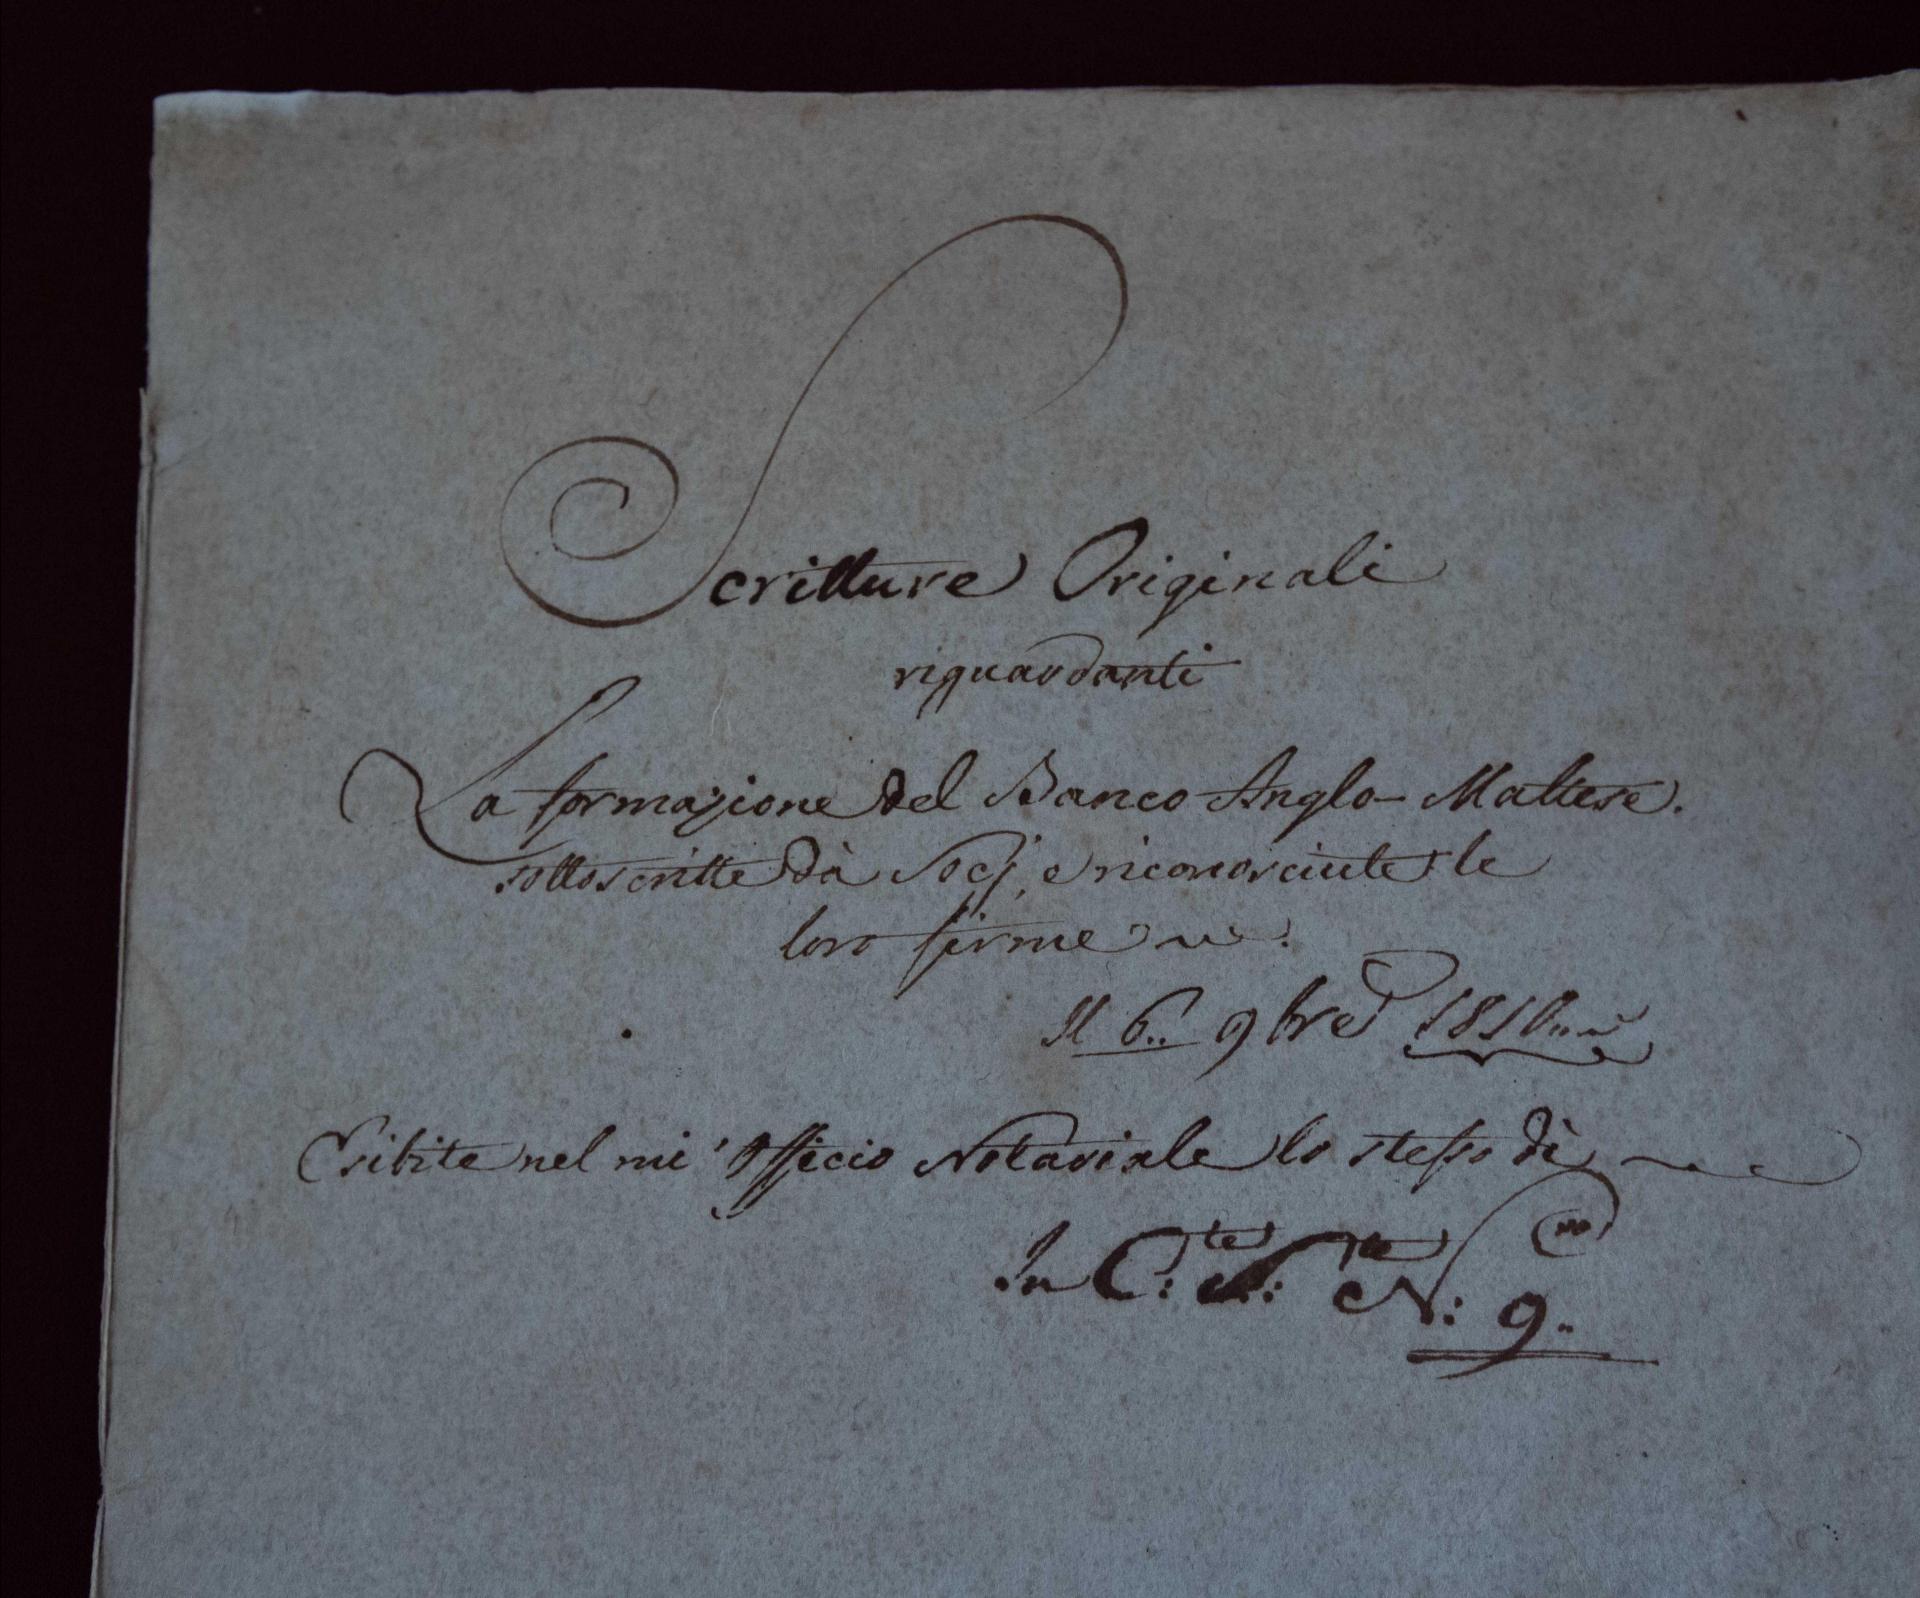 Scritture Originali
riguardanti
La formazione del Banco Anglo-Maltese.
sottoscritte dà Socj, e riconosciute le
loro firme
Il 6.. 9bre 1810..
Esibite nel mi' Officio Notariale lo stesso dì
In C:te N: 9..